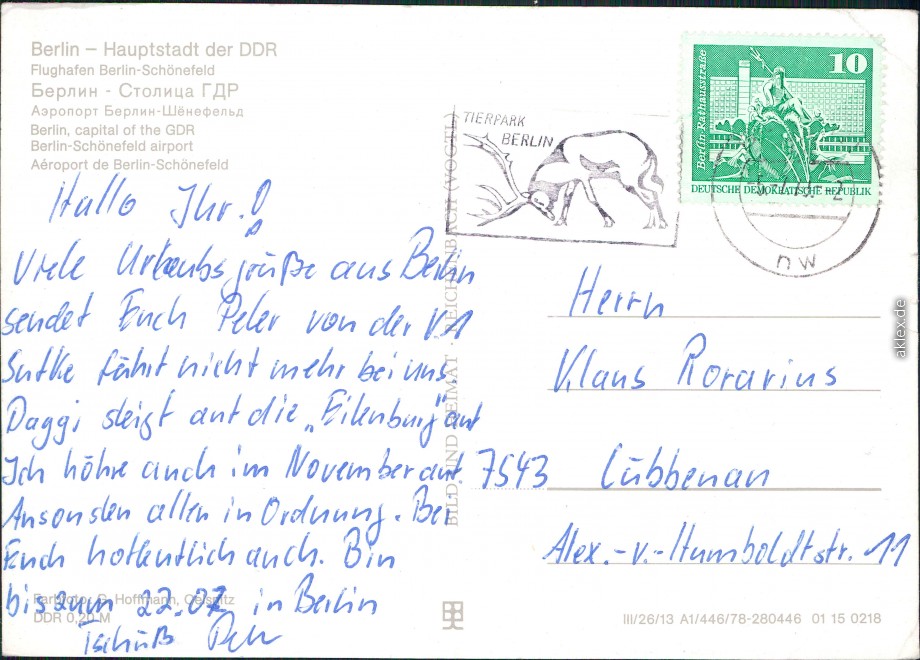 Berlin – Hauptstadt der DDR
Flughafen Berlin-Schönefeld
Берлин - Столица ГДР
Аэропорт Берлин-Шёнефельд
Berlin, capital of the GDR
Berlin-Schönefeld airport
Aéroport de Berlin-Schönefeld
Hallo Ihr!
Viele Urlaubsgrüße aus Berlin
sendet Euch Peter von der V1
Sutke fährt nicht mehr bei uns
Daggi steigt auf die „Eilenburg" auf
Ich höhre auch im November auf
Ansonsten allen in Ordnung. Bei
Euch hoffentlich auch. Bin
bis zum 22.07 in Berlin
Tschüß
Farbfoto: G. Hoffmann, Oelsnitz
DDR 0,20 M
BILD UND HEIMAT REICHENBACH (VOGTL)
TIERPARK
BERLIN
10
Berlin Rathausstraße
DEUTSCHE DEMOKRATISCHE REPUBLIK
nw
Herrn
Klaus Rorarius
7543 Lübbenau
Alex.-v.-Humboldtstr. 11
III/26/13 A1/446/78-280446 01 15 0218
aklex.de